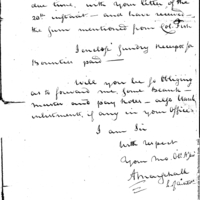 due time, with your letter of the
20th instant — and have received
the sum mentioned from Col. Fish
I enclose sundry Receipts for
Bounties paid
Will you be so obliging
as to forward me some blank
muster and pay rolls — also blank
inlistments, if any in your Office
I am Sir
with respect
Your mo. Ob. 
A Marshall